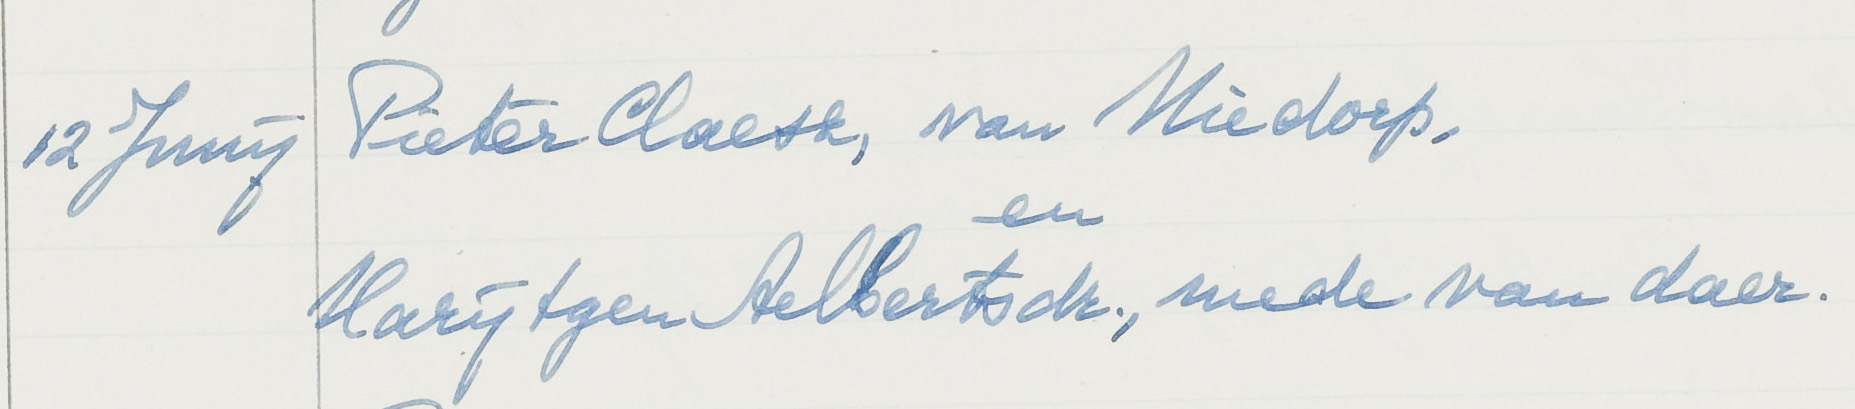 12 Junij Pieter Claesz, van Niedorp.
en
Marijtgen Aelbertsdr., mede van daer.